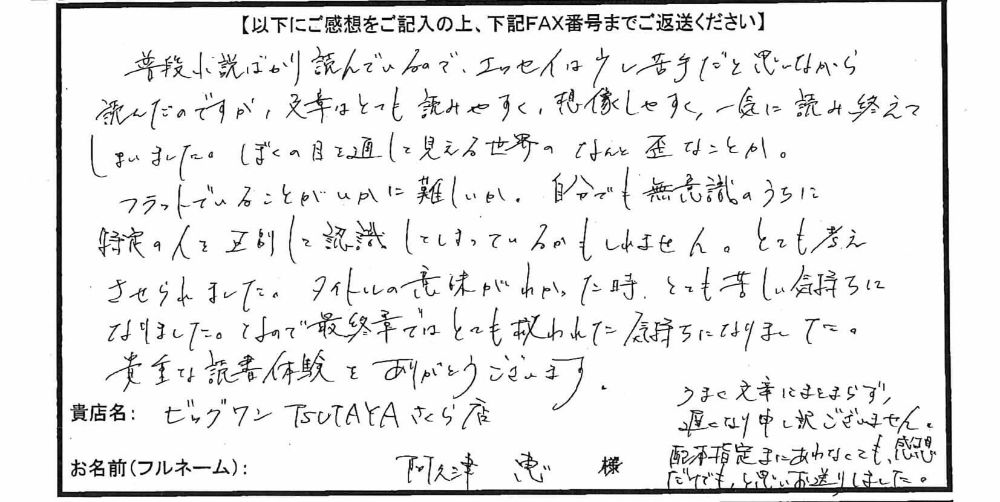 【以下にご感想をご記入の上、下記FAX番号までご返送ください】
普段小説ばかり読んでいるので、エッセイは少し苦手だと思いながら
読んだのですが、文章はとても読みやすく、想像しやすく、一気に読み終えて
しまいました。ぼくの目を通して見える世界のなんと歪なことか。
フラットでいることがいかに難しいか。自分でも無意識のうちに
特定の人を区別して認識してしまっているかもしれません。とても考え
させられました。タイトルの意味がわかった時、とても苦しい気持ちに
なりました。なので最終章ではとても救われた気持ちになりました。
貴重な読書体験をありがとうございます。
貴店名: ビッグワンTSUTAYAさくら店
お名前(フルネーム): 阿久津 恵 様
うまく文章にまとまらず、
遅くなり申し訳ございません。
配本指定まにあわなくても、感想
だけでも、と思いお送りしました。